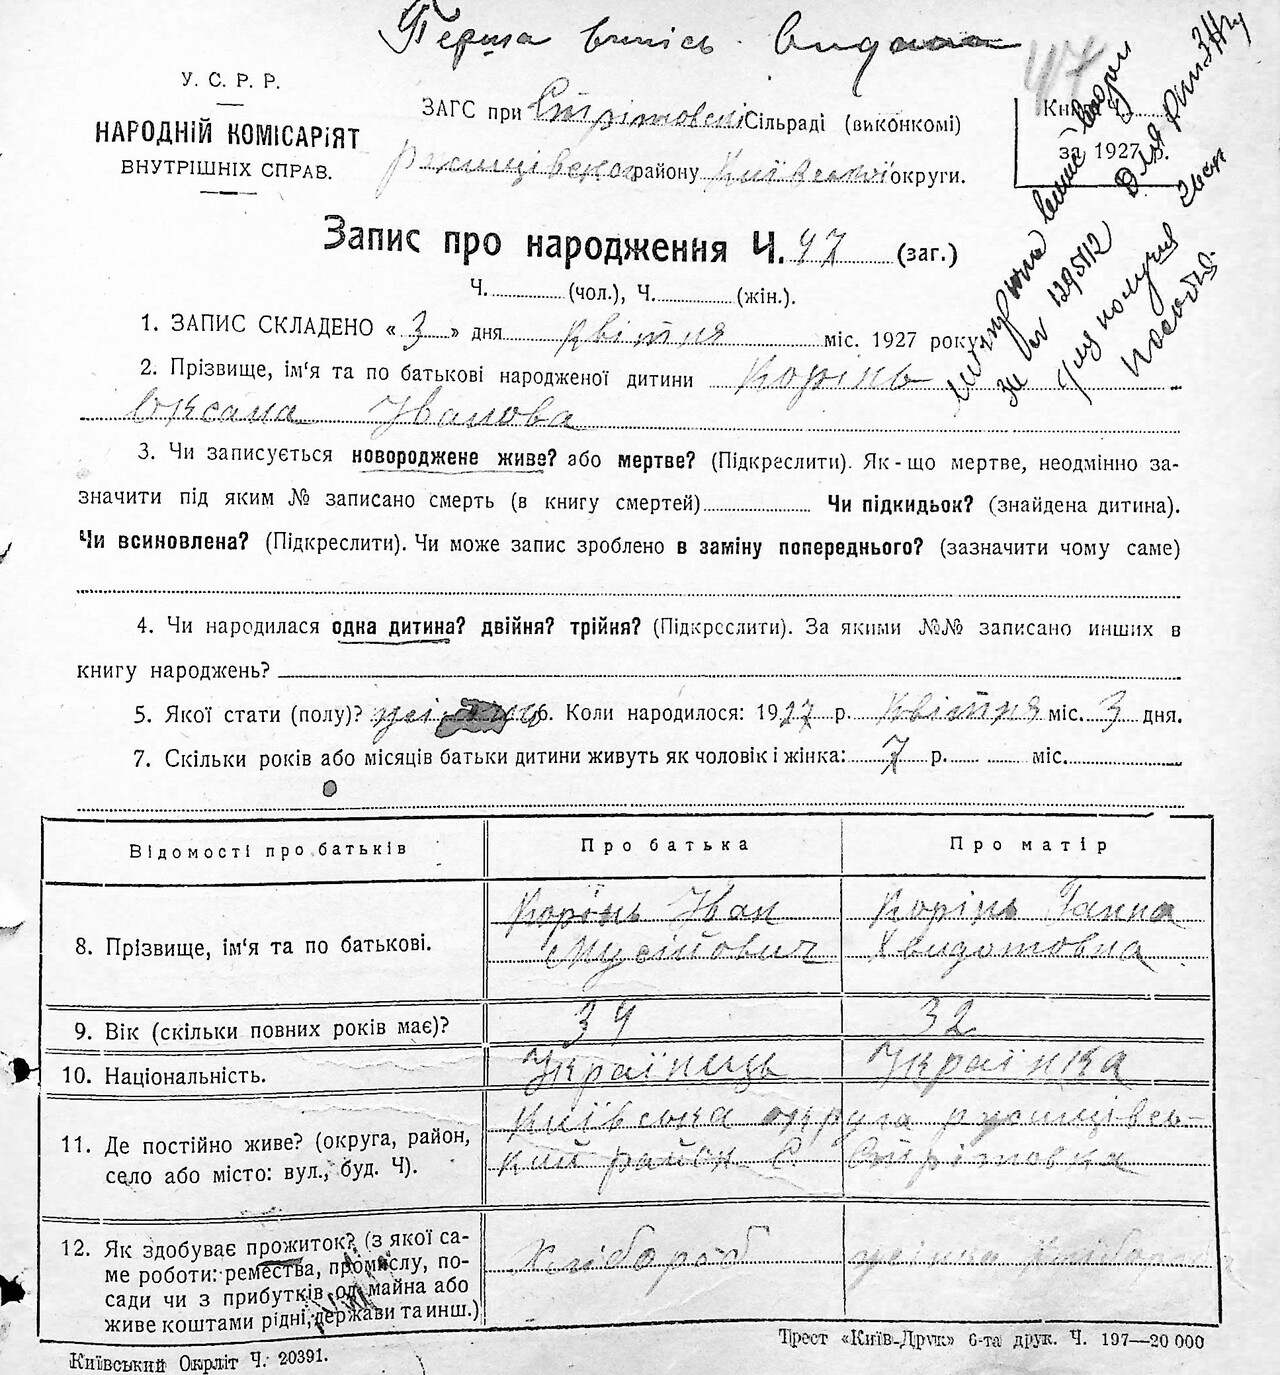 Перша випись видана
47
У. С. Р. Р.
НАРОДНІЙ КОМІСАРІЯТ
ВНУТРІШНІХ СПРАВ.
ЗАГС при Стрітовській Сільраді (виконкомі)
ржищівського району Київської округи.
Кн
за 1927 р.
Запис про народження Ч. 47 (заг.)
Ч. (чол.), Ч. (жін.).
1. ЗАПИС СКЛАДЕНО « 3 » дня квітня міс. 1927 року.
2. Прізвище, ім'я та по батькові народженої дитини Корінь
Оксана Іванова
3. Чи записується новороджене живе? або мертве? (Підкреслити). Як-що мертве, неодмінно за-
значити під яким № записано смерть (в книгу смертей) Чи підкидьок? (знайдена дитина).
Чи всиновлена? (Підкреслити). Чи може запис зроблено в заміну попереднього? (зазначити чому саме)
4. Чи народилася одна дитина? двійня? трійня? (Підкреслити). За якими №№ записано инших в
книгу народжень?
5. Якої стати (полу)? 6. Коли народилося: 1927 р. Квітня міс. 3 дня.
7. Скільки років або місяців батьки дитини живуть як чоловік і жінка: 7 р. міс.
Відомості про батьків Про батька Про матір
8. Прізвище, ім'я та по батькові.
Корінь Іван
Мусійович
Корінь Ганна
Хвидотовна
9. Вік (скільки повних років має)? 34 32
10. Національність. Українець Українка
11. Де постійно живе? (округа, район,
село або місто: вул., буд. Ч).
Київська округа ржищівсь-
кий район с. Стрітовка
12. Як здобуває прожиток? (з якої са-
ме роботи: ремества, промислу, по-
сади чи з прибутків од майна або
живе коштами рідні, держави та инш.)
Хлібороб
жінка хлібороба
Київський Окрліт Ч. 20391.
Трест «Київ-Друк» 6-та друк. Ч. 197—20 000